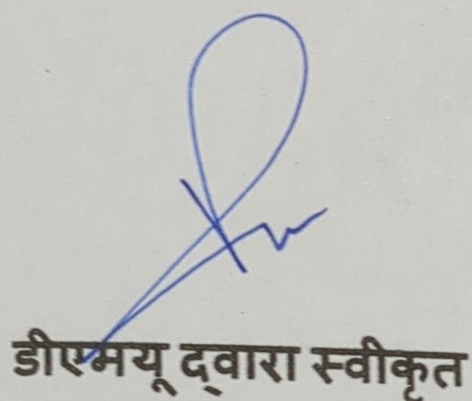 डीएमयू द्वारा स्वीकृत